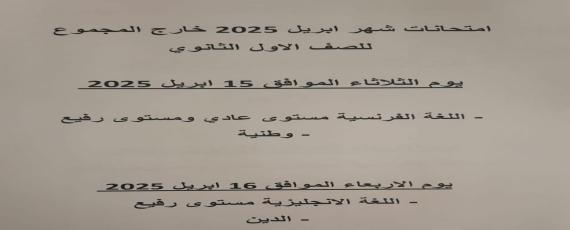 امتحانات شهر ابريل 2025 خارج المجموع
للصف الاول الثانوي
يوم الثلاثاء الموافق 15 ابريل 2025
- اللغة الفرنسية مستوى عادي ومستوى رفيع
- وطنية
يوم الاربعاء الموافق 16 ابريل 2025
- اللغة الانجليزية مستوى رفيع
- الدين